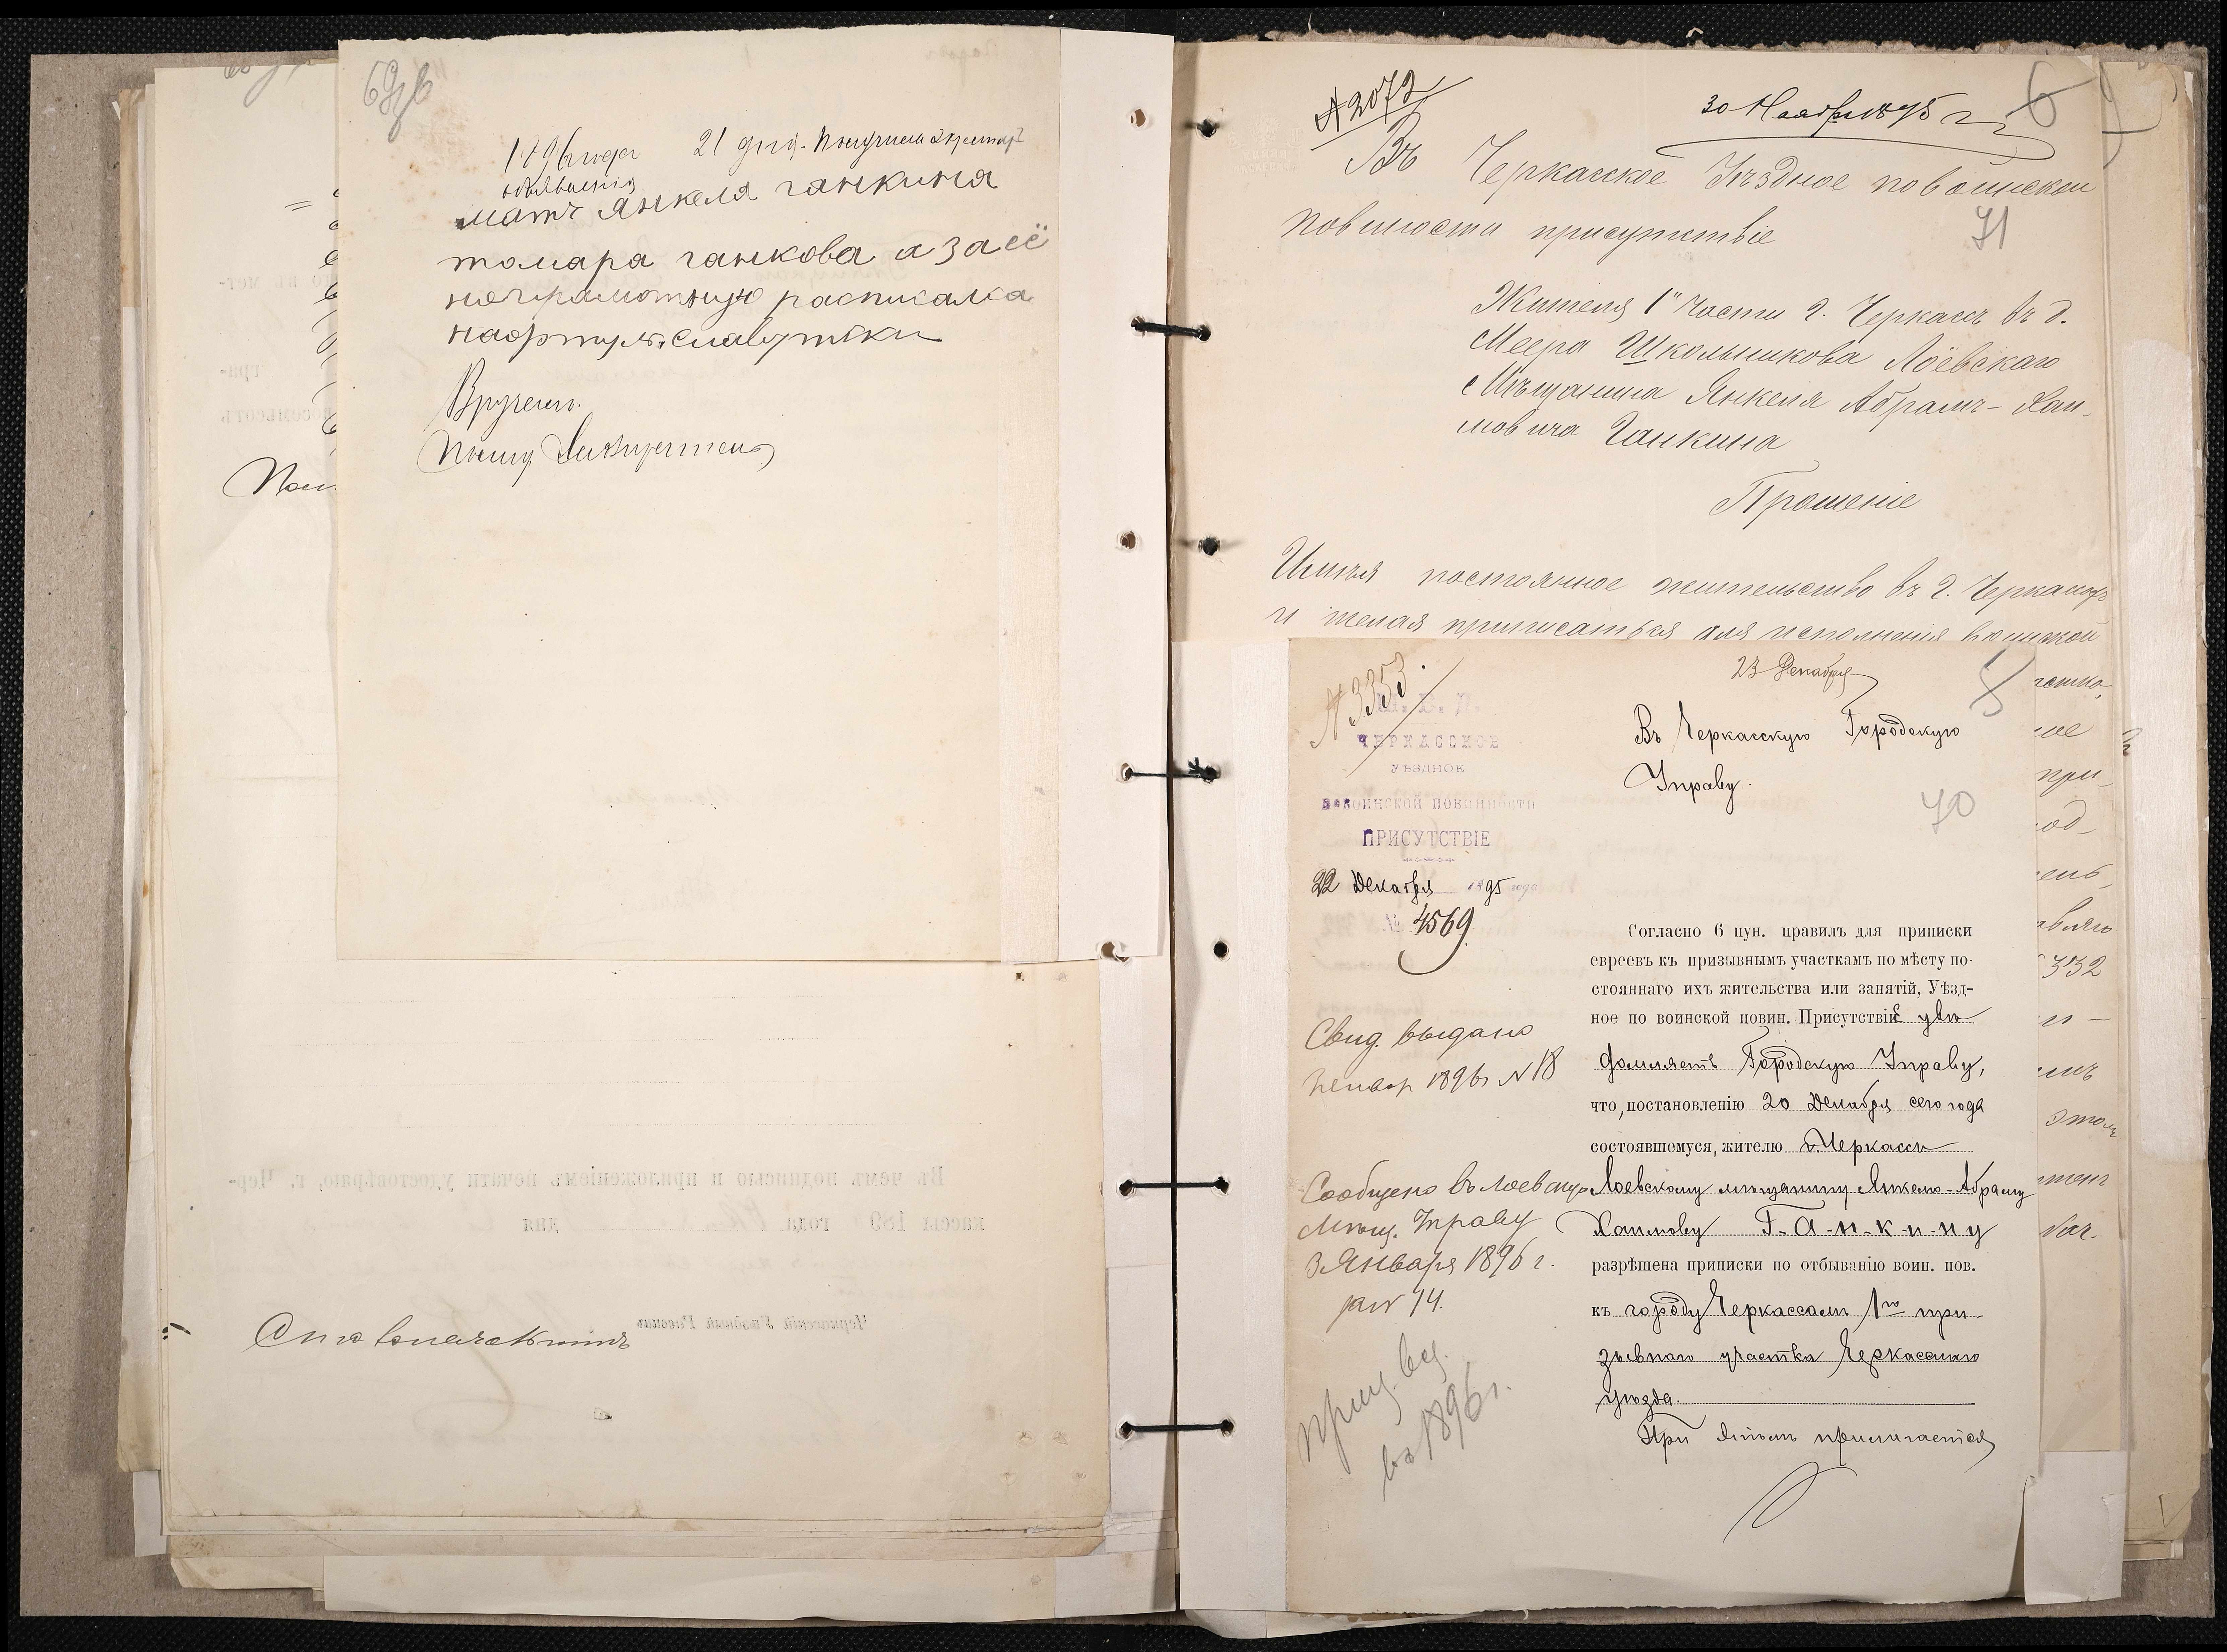 69 об
1896 года 21 дня. Получила
объявления
мать Янкеля ганкина
томара ганкова а за её
неграмотную расписалса
Вручилъ.
Въ чемъ подписью и приложеніемъ печати удостовѣряю, г. Чер-
кассы 189 года дня
Черкасскій Уѣздный Раввинъ
№ 2072
30 Ноября 95 г
Въ Черкасское Уѣздное по воинской
повиности присутствіе
71
Жителя 1й части г. Черкассъ въ д.
Меера Школьникова Лоевскаго
Мѣщанина Янкеля Абрамъ-Хаи-
мовича Ганкина
Прошеніе
Имѣя постоянное жительство въ г. Черкассахъ
и желая приписаться для исполненія воинской
23 Декабря
№ 3353
М. В. Д.
ЧЕРКАССКОЕ
УѢЗДНОЕ
по воинской повинности
ПРИСУТСТВІЕ
22 Декабря 1895 года
№ 4569
Въ Черкасскую Городскую
Управу.
70
Согласно 6 пун. правилъ для приписки
евреевъ къ призывнымъ участкамъ по мѣсту по-
стояннаго ихъ жительства или занятій, Уѣзд-
ное по воинской повин. Присутствіе уве
домляетъ Городскую Управу,
что, постановленію 20 Декабря сего года
состоявшемуся, жителю г. Черкассъ
Лоевскому мѣщанину Янкелю-Абраму
Хаимову Г-а-н-к-и-н-у
разрѣшена приписки по отбыванію воин. пов.
къ городу Черкассамъ 1го при-
зывнаго участка Черкасскаго
уѣзда.
При этомъ прилагается
Свид. выдано
Январ 1896 № 18
Сообщено въ Лоевскую
Мѣщ. Управу
3 Января 1896 г.
за № 14.
въ 1896 г.
332
этомъ